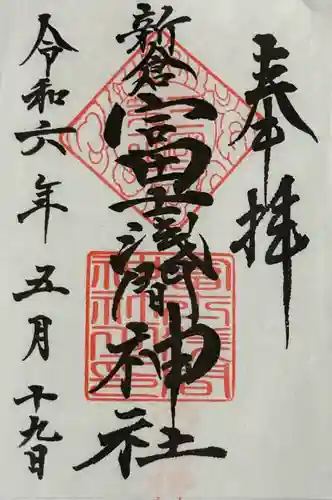 奉拝
新倉富士浅間神社
令和六年五月十九日